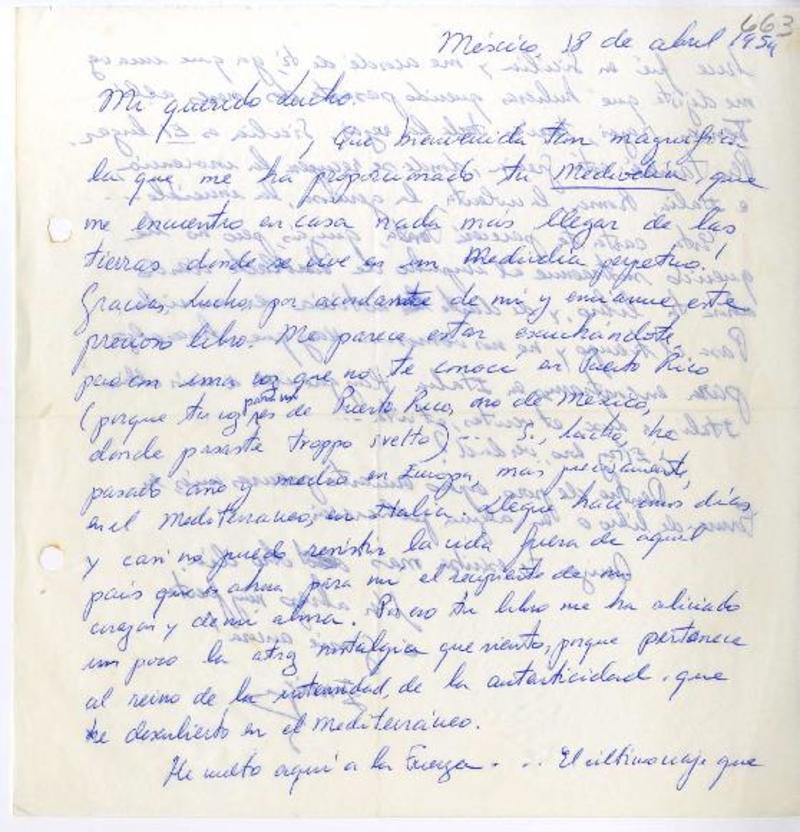 663
México, 18 de abril 1954
Mi querido Lucho:
¡Qué bienvenida tan magnífica
la que me ha proporcionado tu Mediodía, que
me encuentro en casa nada más llegar de las
tierras donde se vive en un Mediodía perpetuo!
Gracias, Lucho, por acordarte de mí y enviarme este
precioso libro. Me parece estar escuchándote,
pero con una voz que no te conocí en Puerto Rico
(porque tu voz para mí es de Puerto Rico, no de México,
donde pasaste troppo svelto) ... Sí, Lucho, he
pasado año y medio en Europa, mas precisamente,
en el Mediterráneo, en Italia. Llegué hace unos días
y casi no puedo resistir la vida fuera de aquel
país que es ahora para mí el recipiente de mi
corazón y de mi alma. Por eso tu libro me ha aliviado
un poco la atroz nostalgia que siento, porque pertenece
al reino de la intensidad, de la autenticidad que
he descubierto en el Mediterráneo.
He vuelto aquí a la fuerza ... El último viaje que